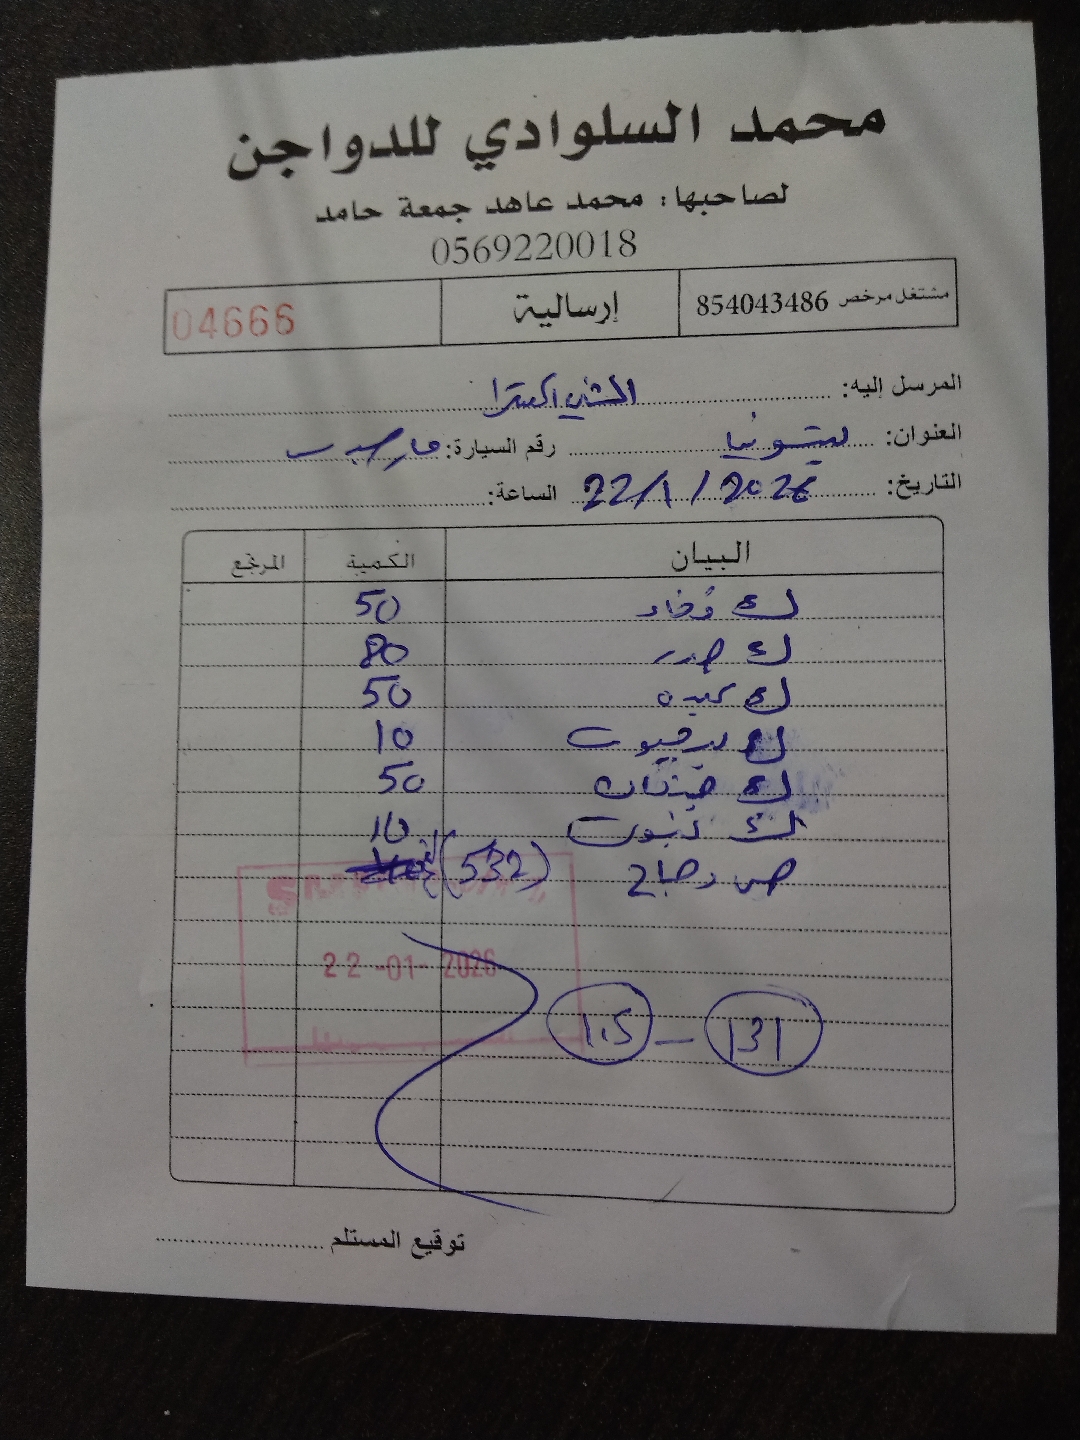 محمد السلوادي للدواجن
لصاحبها: محمد عاهد جمعة حامد
0569220018
مشتغل مرخص 854043486 إرسالية 04666
المرسل إليه: الشني اكسترا
العنوان: رقم السيارة:
التاريخ: 22/1/2026 الساعة:
البيان الكمية المرتجع
ك فخاد 50
ك صدر 80
ك كبده 50
ك 10
ك 50
ك 10
ص دجاج (532)
22-01-2026
131 - 105
توقيع المستلم